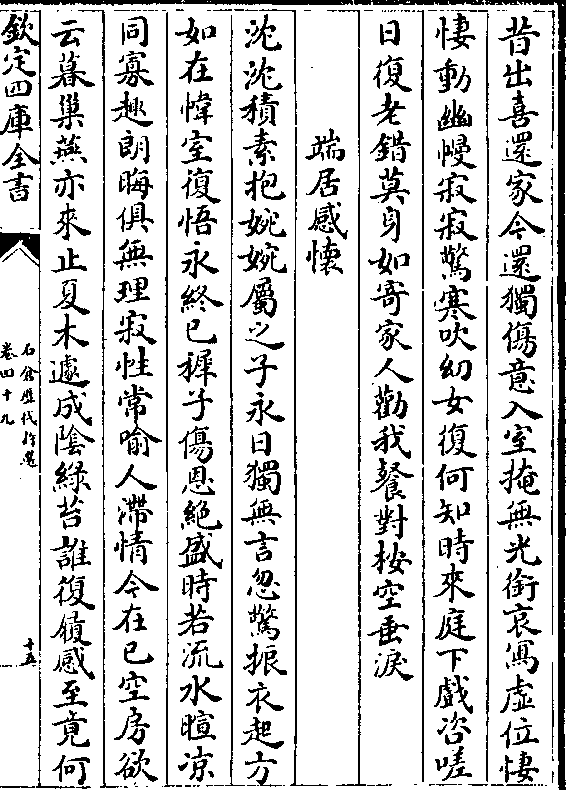 昔出喜還家今還獨傷意入室掩無光銜哀寫虛位悽
悽動幽幔寂寂驚寒吹幼女復何知時來庭下戲咨嗟
日復老錯莫身如寄家人勸我飱對桉空垂淚
端居感懷
沈沈積素抱婉婉屬之子永日獨無言忽驚振衣起方
如在幃室復悟永終已稚子傷恩絕盛時若流水暄凉
同寡趣朗晦俱無理寂性常喻人滯情今在已空房欲
云暮巢燕亦來止夏木遽成陰綠苔誰復履感至竟何
欽定四庫全書
石倉歷代詩選
卷四十九
十五